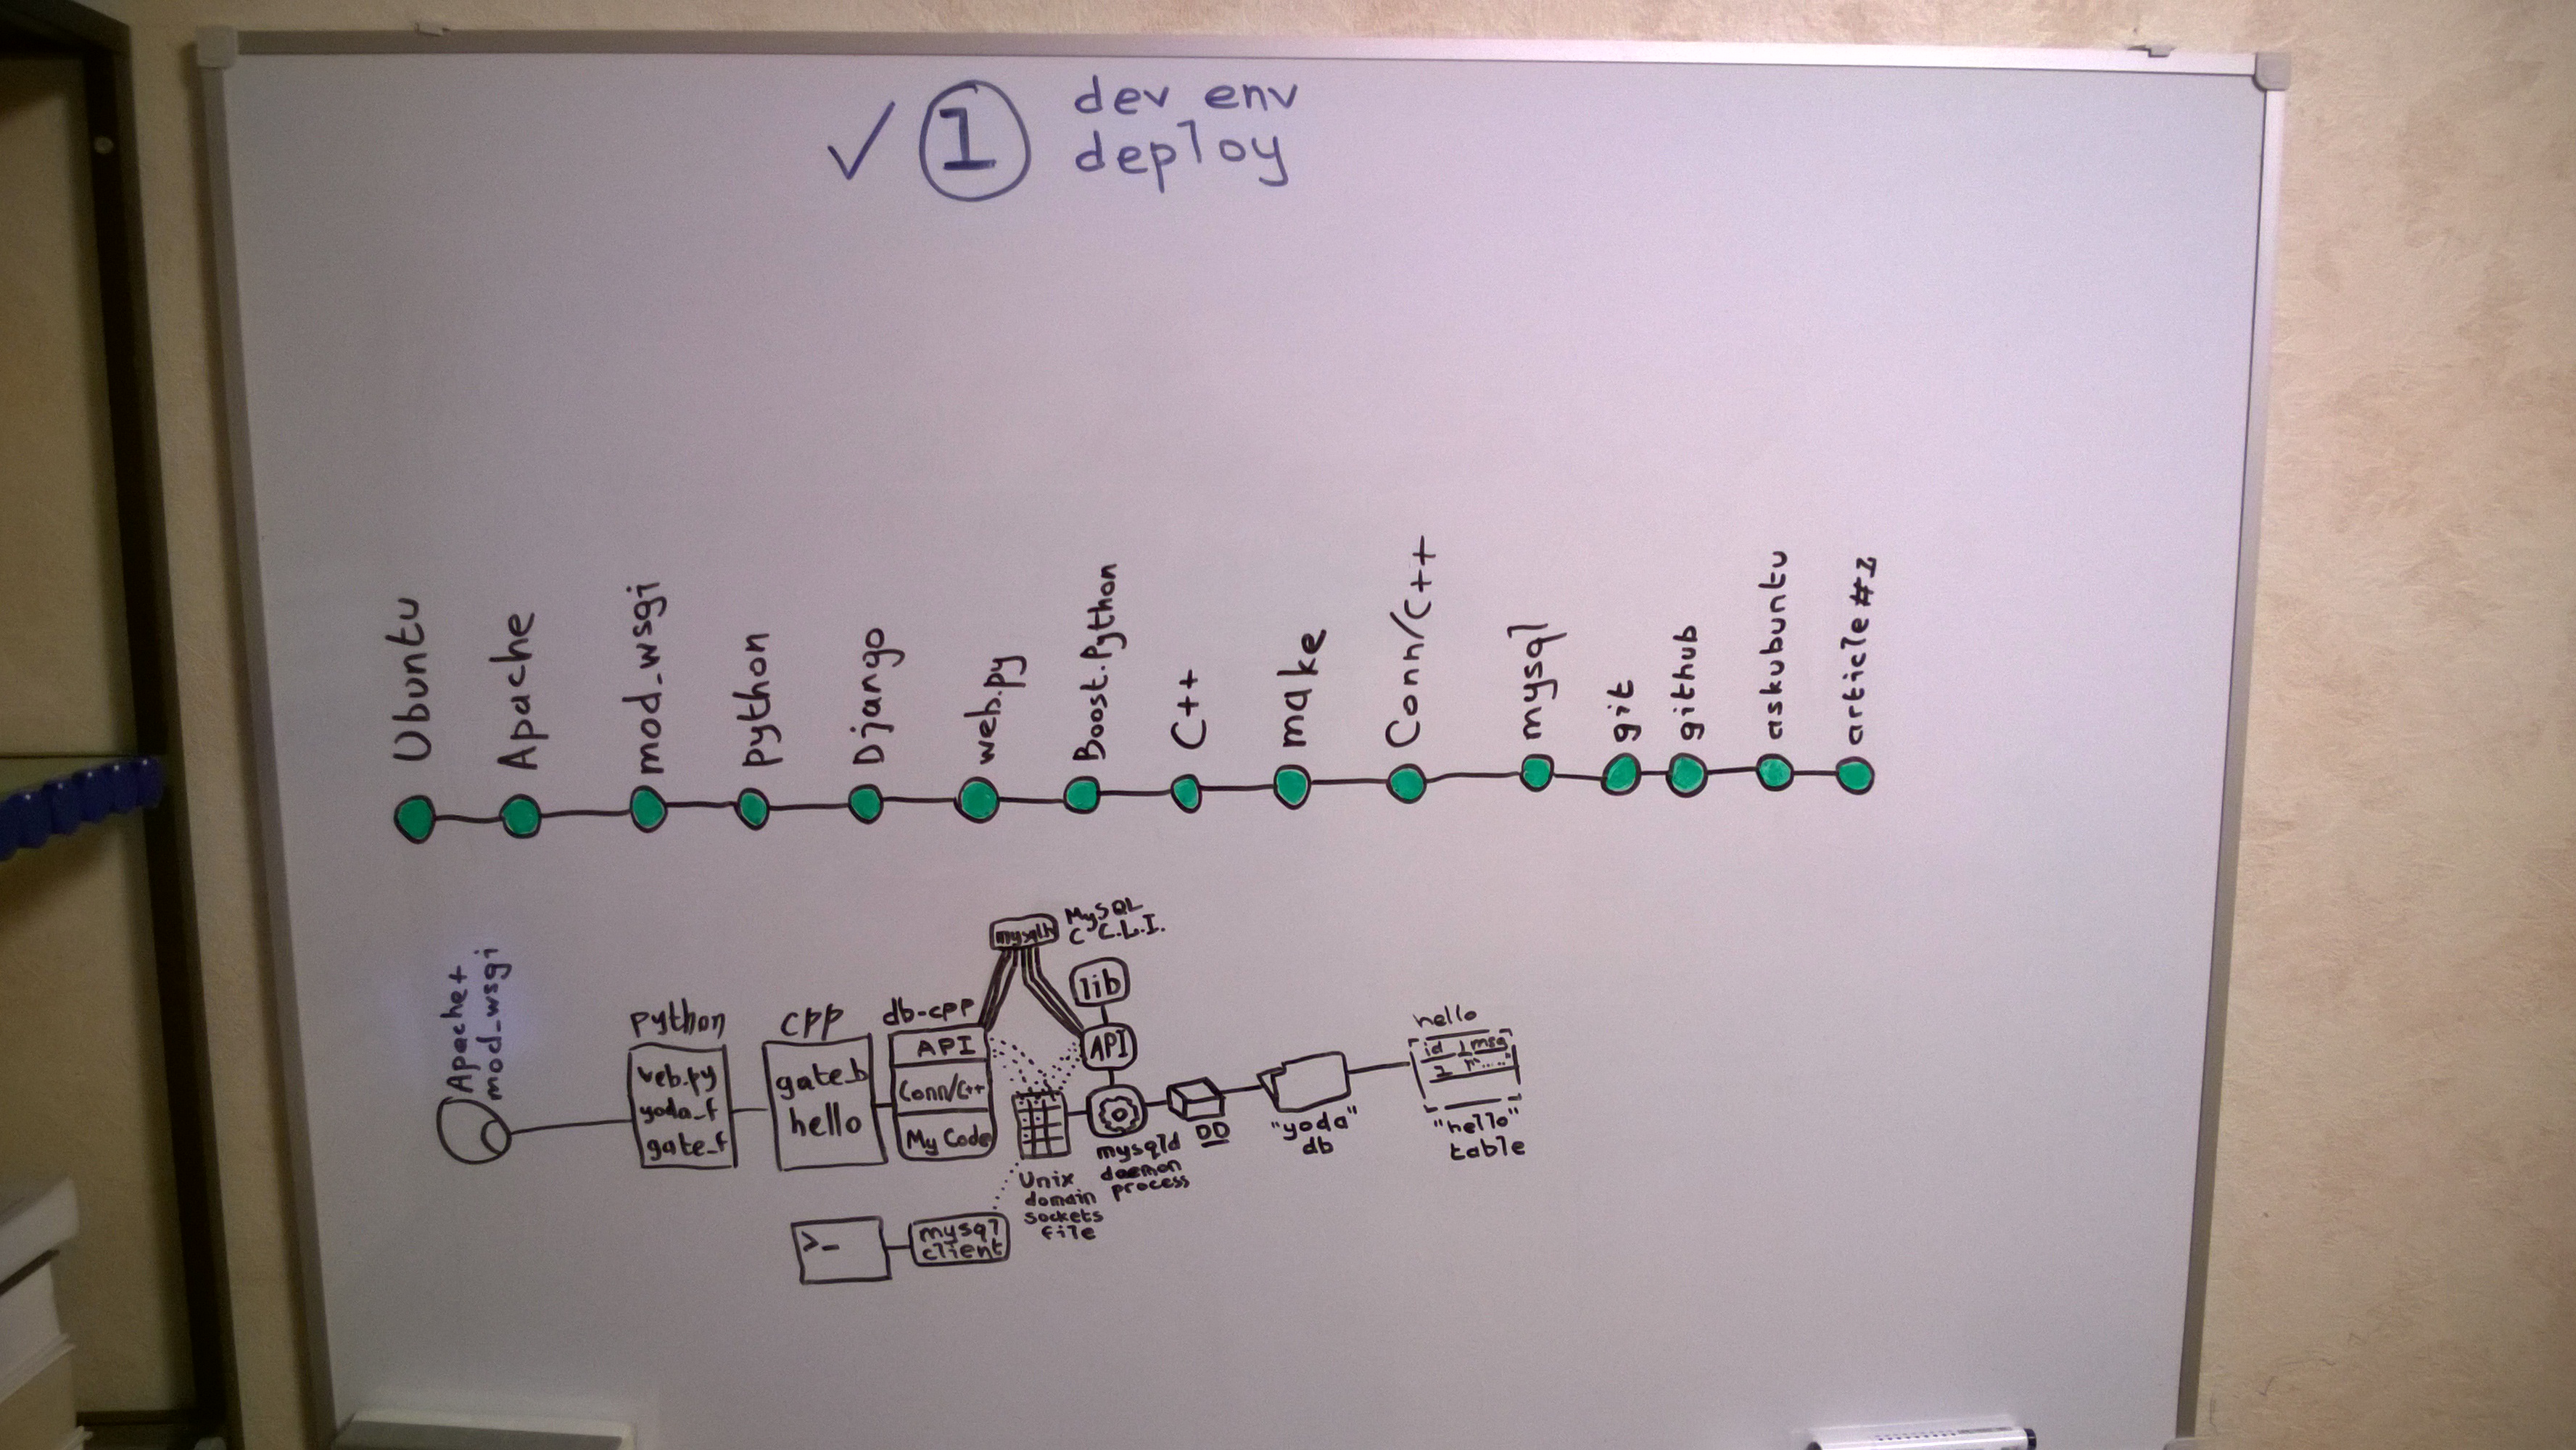 ✓ 1 dev env
deploy
Ubuntu
Apache
mod_wsgi
python
Django
web.py
Boost.Python
C++
make
Conn/C++
mysql
git
github
askubuntu
article #1
Apache+
mod_wsgi
python
web.py
yoda_f
gate_f
cpp
gate_b
hello
db-cpp
API
Conn/C++
My Code
MySQL
C C.L.I.
lib
API
mysqld
daemon
process
Unix
domain
sockets
file
DD
"yoda"
db
hello
id msg
1 "....."
"hello"
table
>_
mysql
client